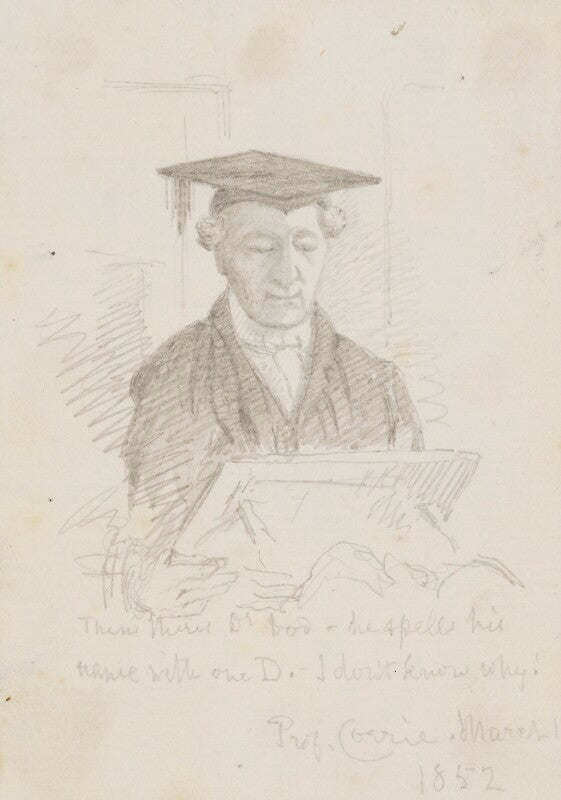 Then there's Dr Dod - he spells his
name with one D. - I don't know why!
Prof. Corrie. March 1
1852